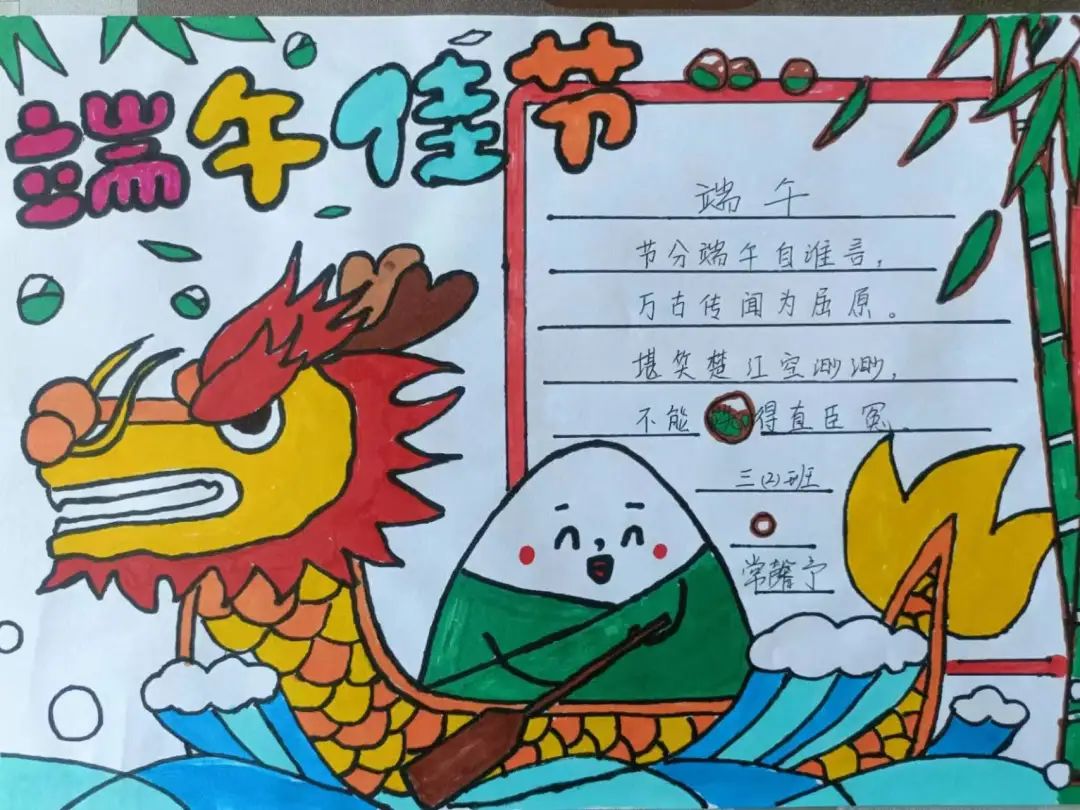 端午佳节
端午
节分端午自谁言,
万古传闻为屈原。
堪笑楚江空渺渺,
不能得直臣冤.
三(2)班
常馨予